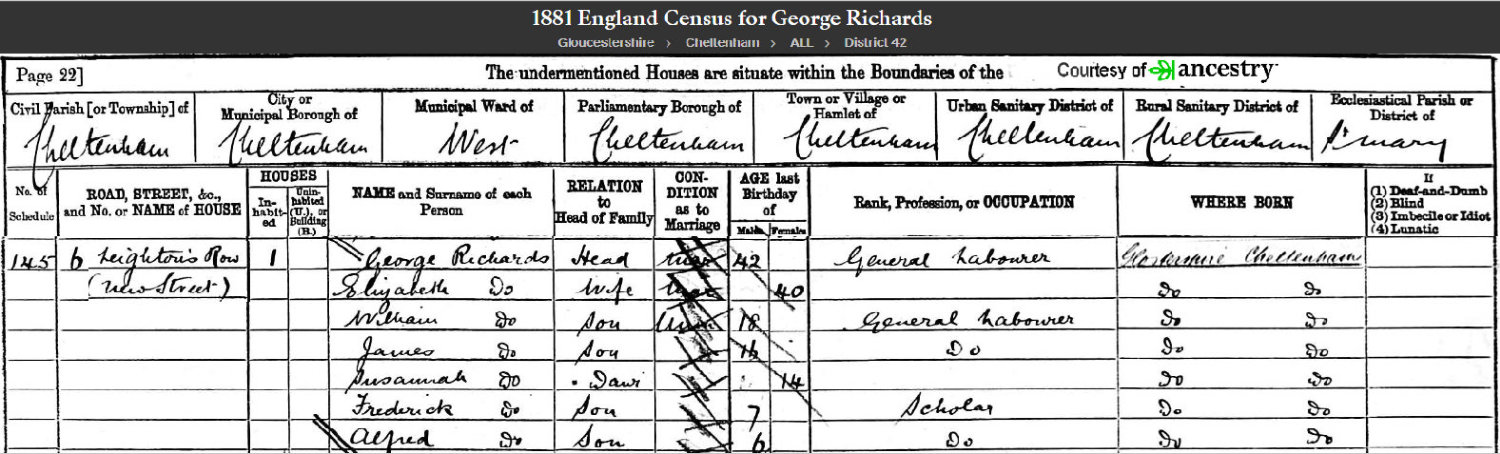 1881 England Census for George Richards
Gloucestershire > Cheltenham > ALL > District 42
Page 22] The undermentioned Houses are situate within the Boundaries of the Courtesy of ancestry
Civil Parish [or Township] of City or Municipal Borough of Municipal Ward of Parliamentary Borough of Town or Village or Hamlet of Urban Sanitary District of Rural Sanitary District of Ecclesiastical Parish or District of
Cheltenham Cheltenham West Cheltenham Cheltenham Cheltenham Cheltenham St Mary
No. of Schedule ROAD, STREET, &c., and No. or NAME of HOUSE HOUSES In-habit-ed Unin-habited (U.), or Building (B.) NAME and Surname of each Person RELATION to Head of Family CON-DITION as to Marriage AGE last Birthday of Males Females Rank, Profession, or OCCUPATION WHERE BORN If (1) Deaf-and-Dumb (2) Blind (3) Imbecile or Idiot (4) Lunatic
145 6 Leighton's Row 1 George Richards Head 42 General Labourer Cheltenham
(New Street) Elizabeth Do Wife 40 Do Do
William Do Son 18 General Labourer Do Do
James Do Son 16 Do Do Do
Susannah Do Daur 14 Do Do
Frederick Do Son 7 Scholar Do Do
Alfred Do Son 6 Do Do Do